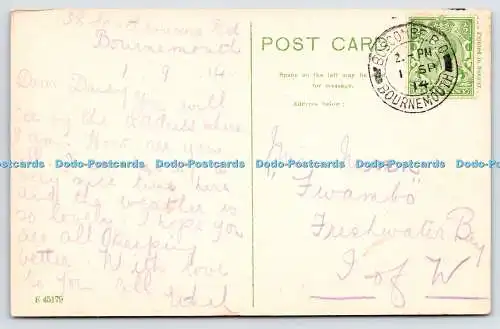 Rd
Bournemouth
1 9 14
Dear Daisy You will
see by the address where
I am. How are you
very nice time here
and the weather is
so lovely. I hope you
are all keeping
better. With love
to you all
E 45179
POST CARD
Space on the left may be
for message.
Address below:
Printed in Saxony.
BOSCOMBE B.O.
2 - PM
1 SP
14
BOURNEMOUTH
"Twambo"
Freshwater Bay
I of W
Dodo-Postcards Dodo-Postcards Dodo-Postcards Dodo-Postcards Dodo-Postcards Dodo-Postcards